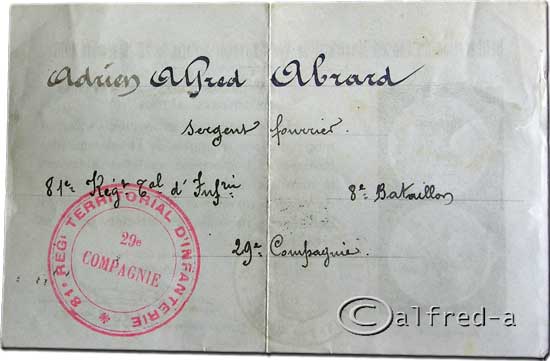 Adrien Alfred Abrard
sergent fourrier.
81e Régt Tal d'Infrie 8e Bataillon
29e Compagnie.
81e REGt TERRITORIAL D'INFANTERIE
29e
COMPAGNIE
©alfred-a